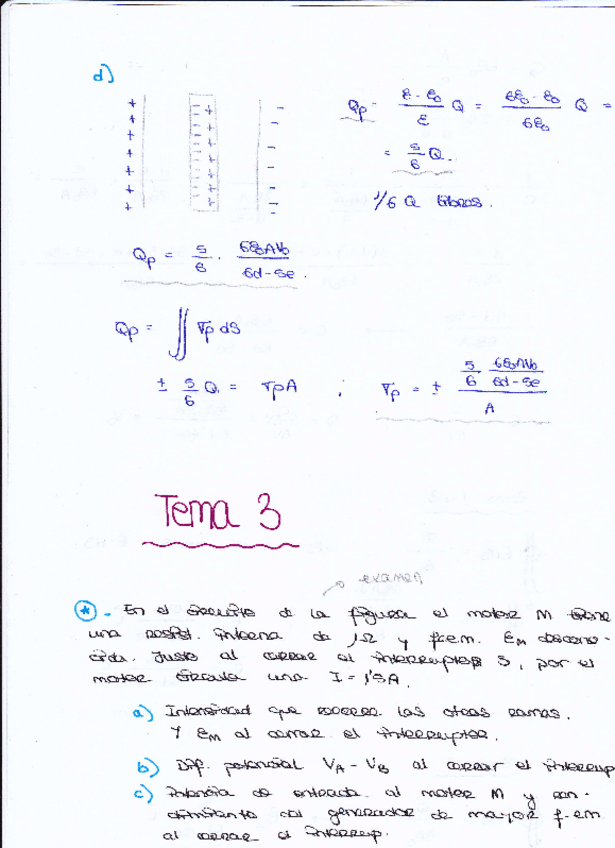 d)
+ + + + + + + - + - + - + - + - + - + - + - - - - - -
Qp = (ε - ε0)/ε Q = (6ε0 - ε0)/6ε0 Q =
= 5/6 Q.
1/6 Q libres.
Qp = 5/6 · 6ε0AV0/(6d-5e).
Qp = ∬ σp dS
± 5/6 Q = σpA ; σp = ± (5/6 6ε0AV0/(6d-5e))/A
Tema 3
examen
* - En el circuito de la figura el motor M tiene
una resist. interna de 1Ω y f.e.m. EM descono-
cida. Justo al cerrar el interruptor S, por el
motor circula una I = 1'5A.
a) Intensidad que recorre las otras ramas.
Y EM al cerrar el interruptor.
b) Dif. potencial VA - VB al cerrar el interrup
c) Potencia de entrada al motor M y ren-
dimiento del generador de mayor f.e.m.
al cerrar el interrup.